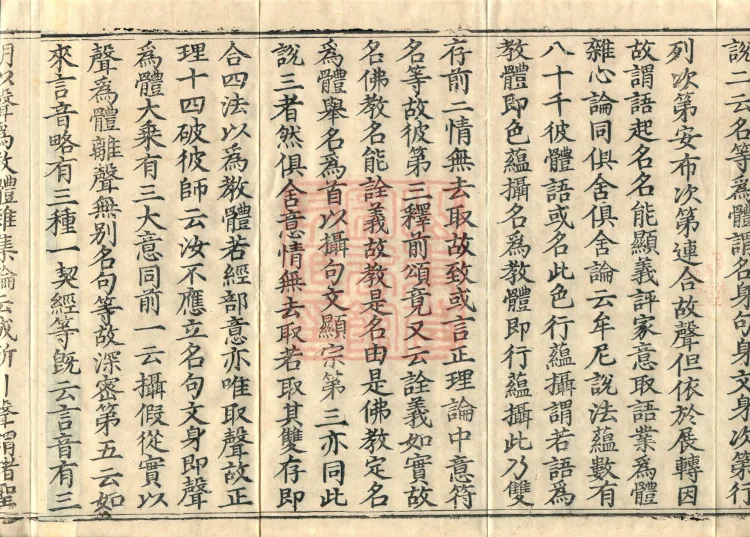 說二云名等爲體謂名身句身文身次第行
列次第安布次第連合故聲但依於展轉因
故謂語起名名能顯義評家意取語業爲體
雜心論同俱舍俱舍論云牟尼說法蘊數有
八十千彼體語或名此色行蘊攝謂若語爲
教體即色蘊攝名爲教體即行蘊攝此乃雙
存前二情無去取故致或言正理論中意符
名等故彼第三釋前頌竟又云詮義如實故
名佛教名能詮義故教是名由是佛教定名
爲體舉名爲首以攝句文顯宗第三亦同此
說三者然俱舍意情無去取若取其雙存即
合四法以爲教體若經部意亦唯取聲故正
理十四破彼師云汝不應立名句文身即聲
爲體大乘有三大意同前一云攝假從實以
聲爲體離聲無別名句等故深密第五云如
來言音略有三種一契經等既云言音有三
明以聲爲教體雜集論云成所引聲謂諸聖